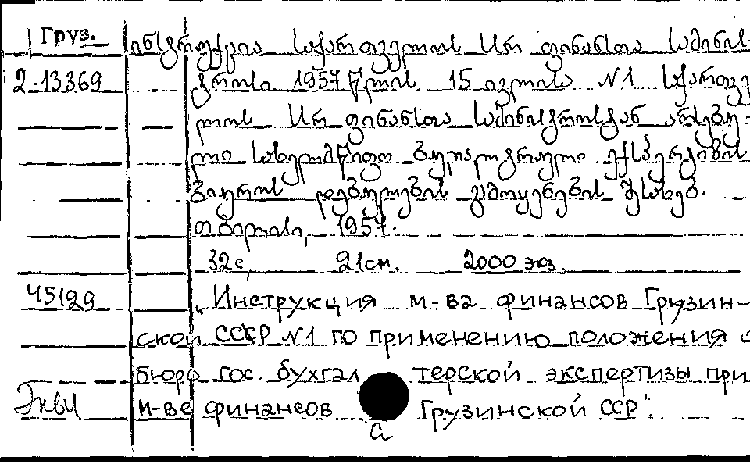 Груз. ინსტრუქცია საქართველოს სსრ ფინანსთა სამინის-
2-13369 ტროსი 1957 წლის 15 ივლისი N1 საქართვე-
ლოს სსრ ფინანსთა სამინისტროსთან არსებუ-
ლი სახელმწიფო ბუღალტრული ექსპერტიზის
ბიუროს დებულების გამოყენების შესახებ.
თბილისი, 1957.
32с, 21см. 2000 экз.
45129 „Инструкция м-ва финансов Грузин-
ской ССР N1 по применению положения о
бюро гос. бухгал терской экспертизы при
м-ве финансов Грузинской ССР".
а